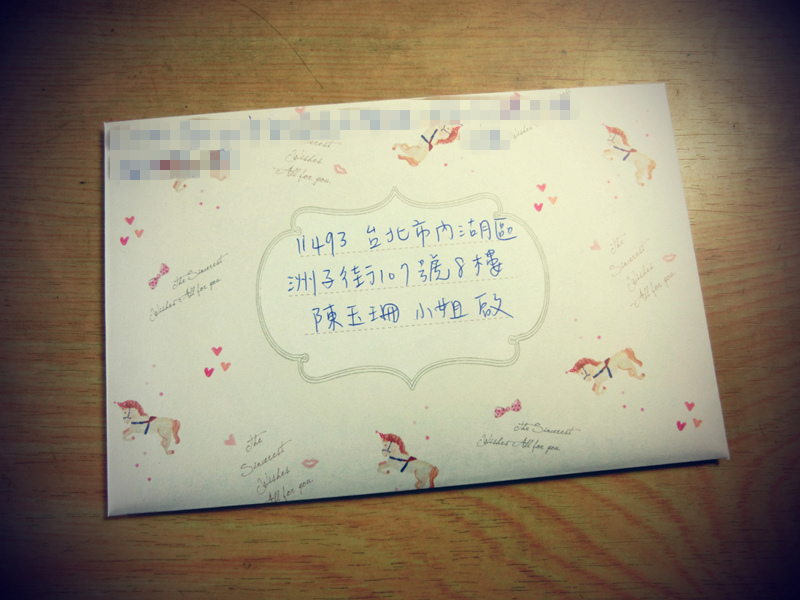 The Sincerest
Wishes
All for you
11493 台北市內湖區
洲子街107號8樓
陳玉珊 小姐 啟
The Sincerest
Wishes All for you
The
Sincerest
Wishes
All for you
The
Sincerest
Wishes
All for you
The Sincerest
Wishes All for you